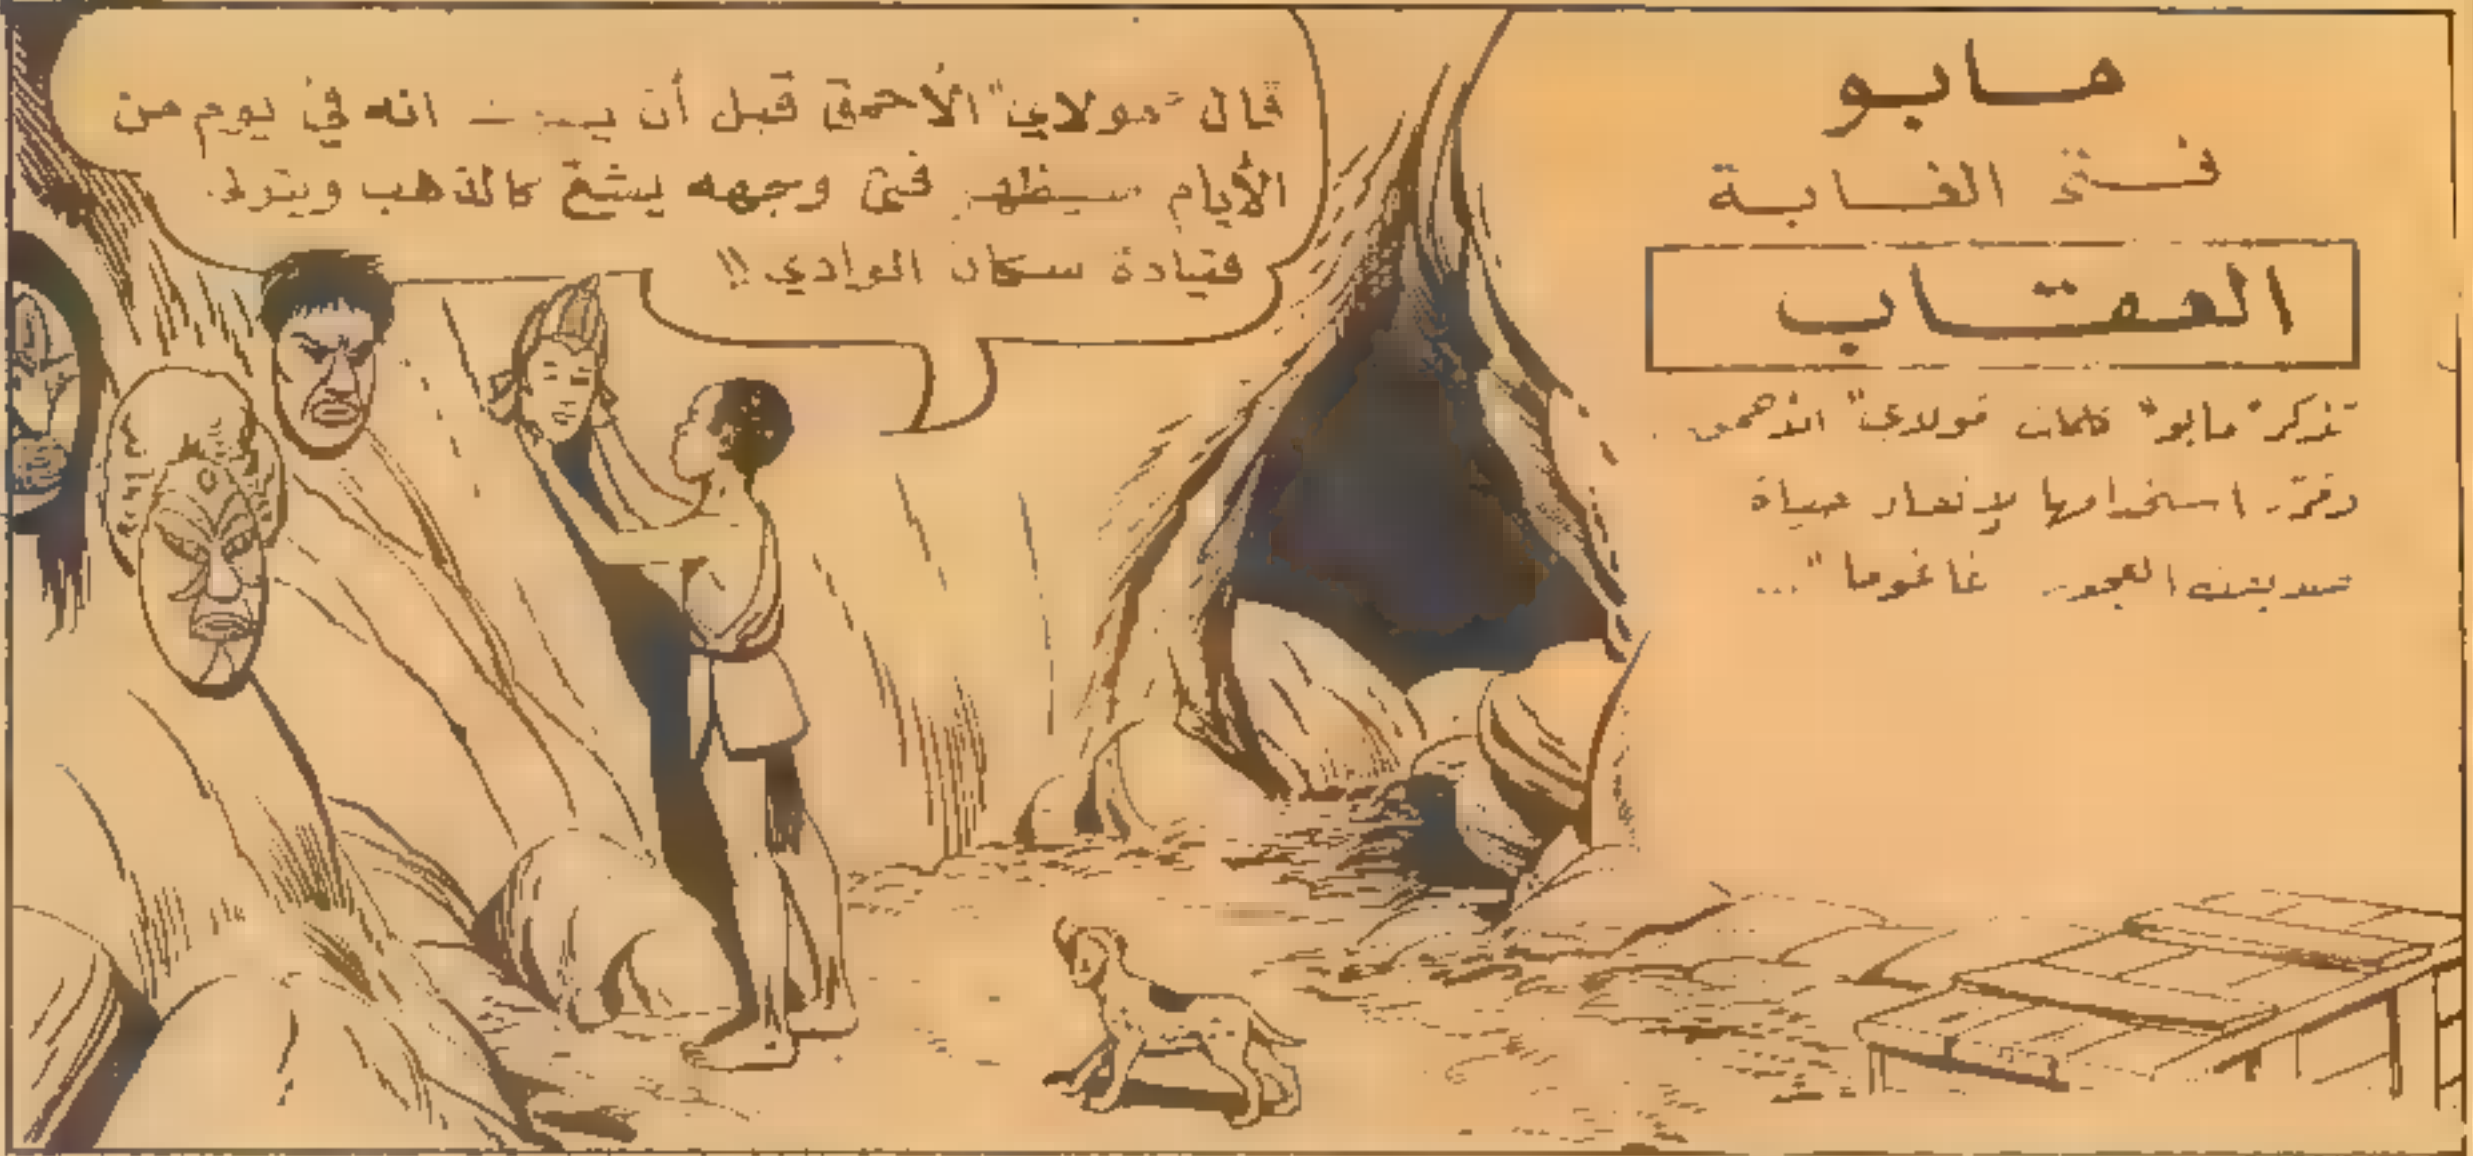 مابو
فتى الغابة
العقاب
تذكر "مابو" كلمات مولاي" الأحمق
وقرر استخدامها لإنقاذ حياة
العجوز غاغوما "...
قال "مولاي" الأحمق قبل أن انه في يوم من
الأيام سيظهر فتى وجهه يشع كالذهب ويتولى
قيادة سكان الوادي!!